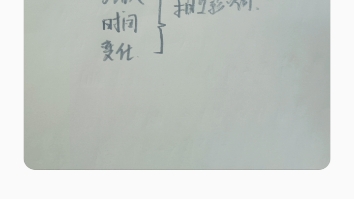 相互影响.
时间
变化